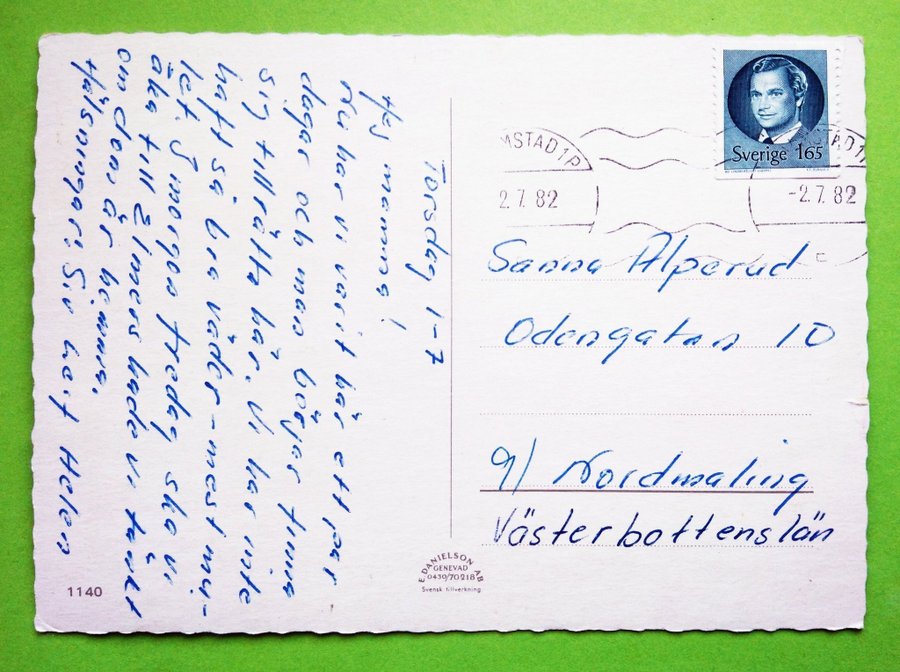 Torsdag 1-7
Hej mamma!
Nu har vi varit här ett par
dagar och man börjar finna
sig tillrätta här. Vi har inte
haft så bra väder - mest mu-
let. I morgon fredag ska vi
åka till Elmers hade vi tänkt
om dom är hemma.
Hälsningar: Siv Leif Helen
Sverige 165
MSTAD 1
2.7.82
-2.7.82
Sanna Alperud
Odengatan 10
91 Nordmaling
Västerbottenslän
E. DANIELSON AB
GENEVAD
0430/70218
Svensk tillverkning
1140